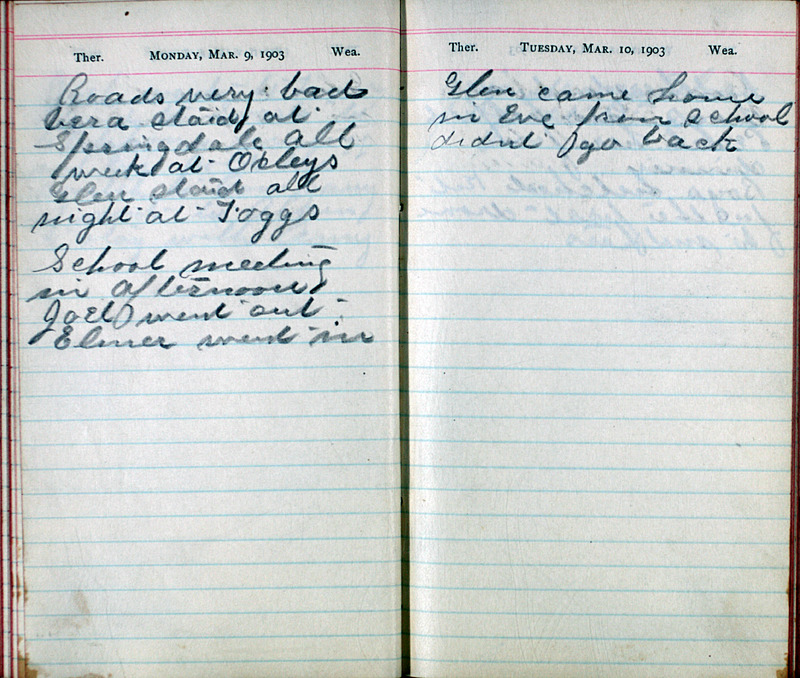 Ther. MONDAY, MAR. 9, 1903 Wea.
Roads very bad
Vera staid at
Springdale all
week at Oxleys
Glen staid all
night at Foggs
School meeting
in afternoon
Joel went out
Elmer went in
Ther. TUESDAY, MAR. 10, 1903 Wea.
Glen came home
in Eve from school
didnt go back